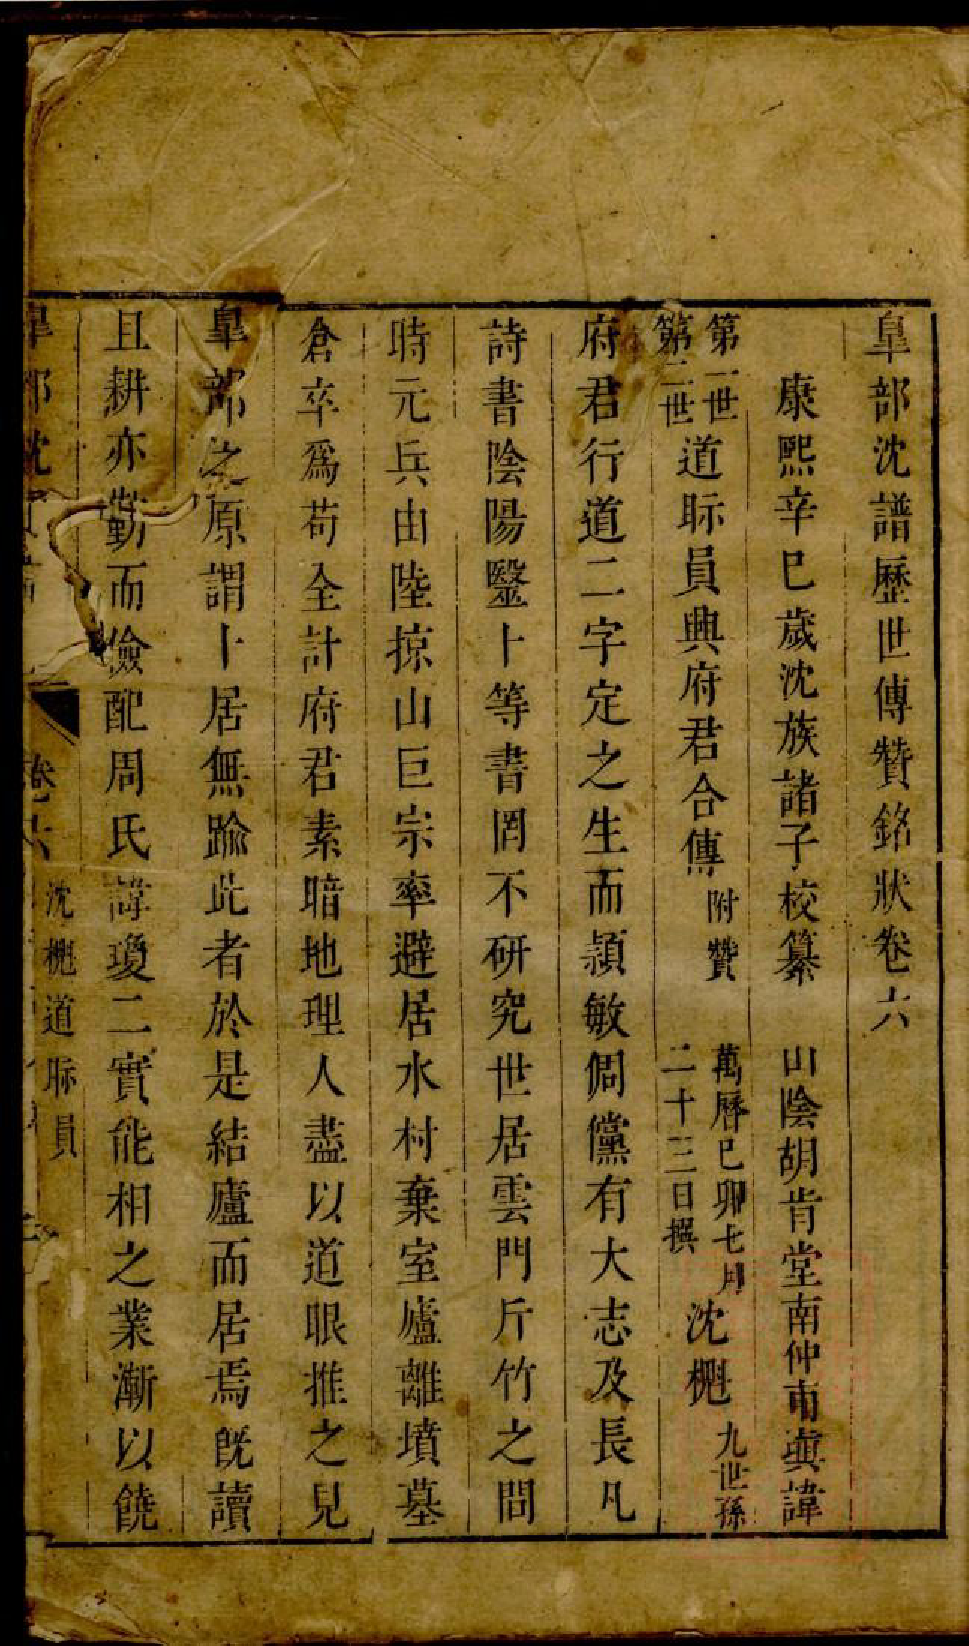 皐部沈譜歷世傳贊銘狀卷六
康熙辛巳歲沈族諸子校纂　山陰胡肯堂南仲甫輿諱
第一世
第二世
道眎員興府君合傳
附贊
萬曆己卯七月
二十三日撰
沈櫆
九世孫
府君行道二字定之生而頴敏倜儻有大志及長凡
詩書陰陽毉卜等書罔不研究世居雲門斤竹之間
時元兵由陸掠山巨宗率避居水村棄室廬離墳墓
倉卒爲苟全計府君素暗地理人盡以道眼推之見
皐部之原謂卜居無踰此者於是結廬而居焉旣讀
且耕亦勤而儉配周氏諱瓊二實能相之業漸以饒
皐部沈
卷六
沈櫆道眎員